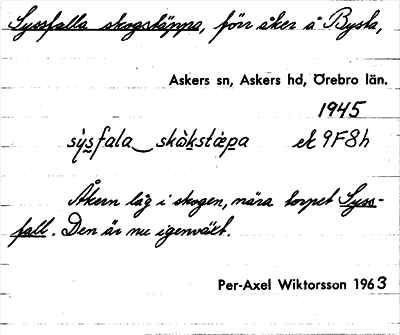 Syssfalla skogstäppa, förr åker å Bysta,
Askers sn, Askers hd, Örebro län.
1945
sỳsfala_skòkstæ̀pa ek 9F8h
Åkern låg i skogen, nära torpet Syss-
fall. Den är nu igenväxt.
Per-Axel Wiktorsson 1963